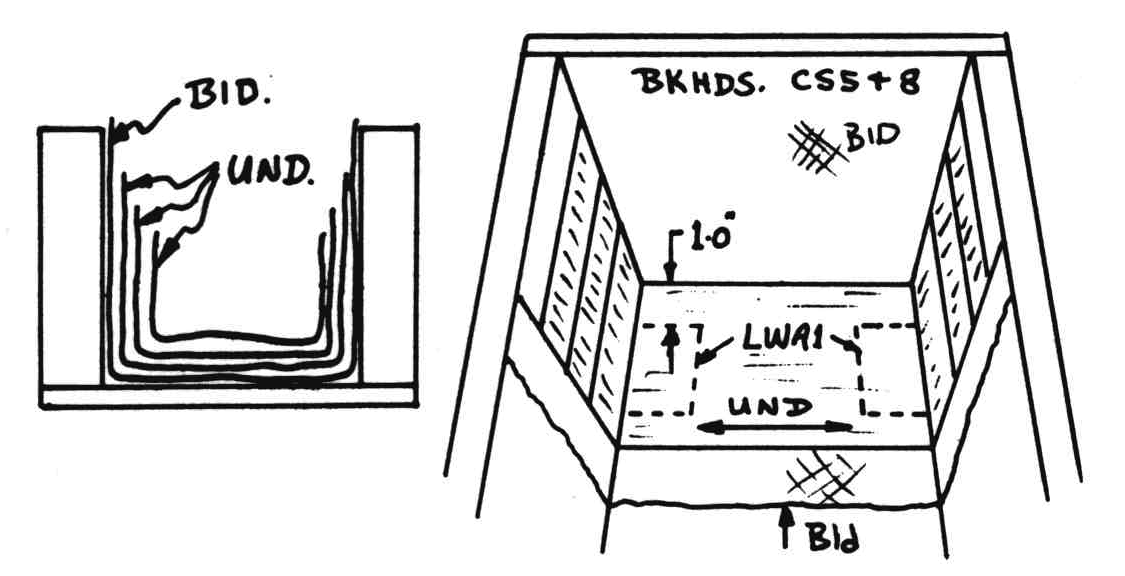 BID.
UND.
BKHDS. CS5+8
BID
1.0"
LWA1
UND
BId